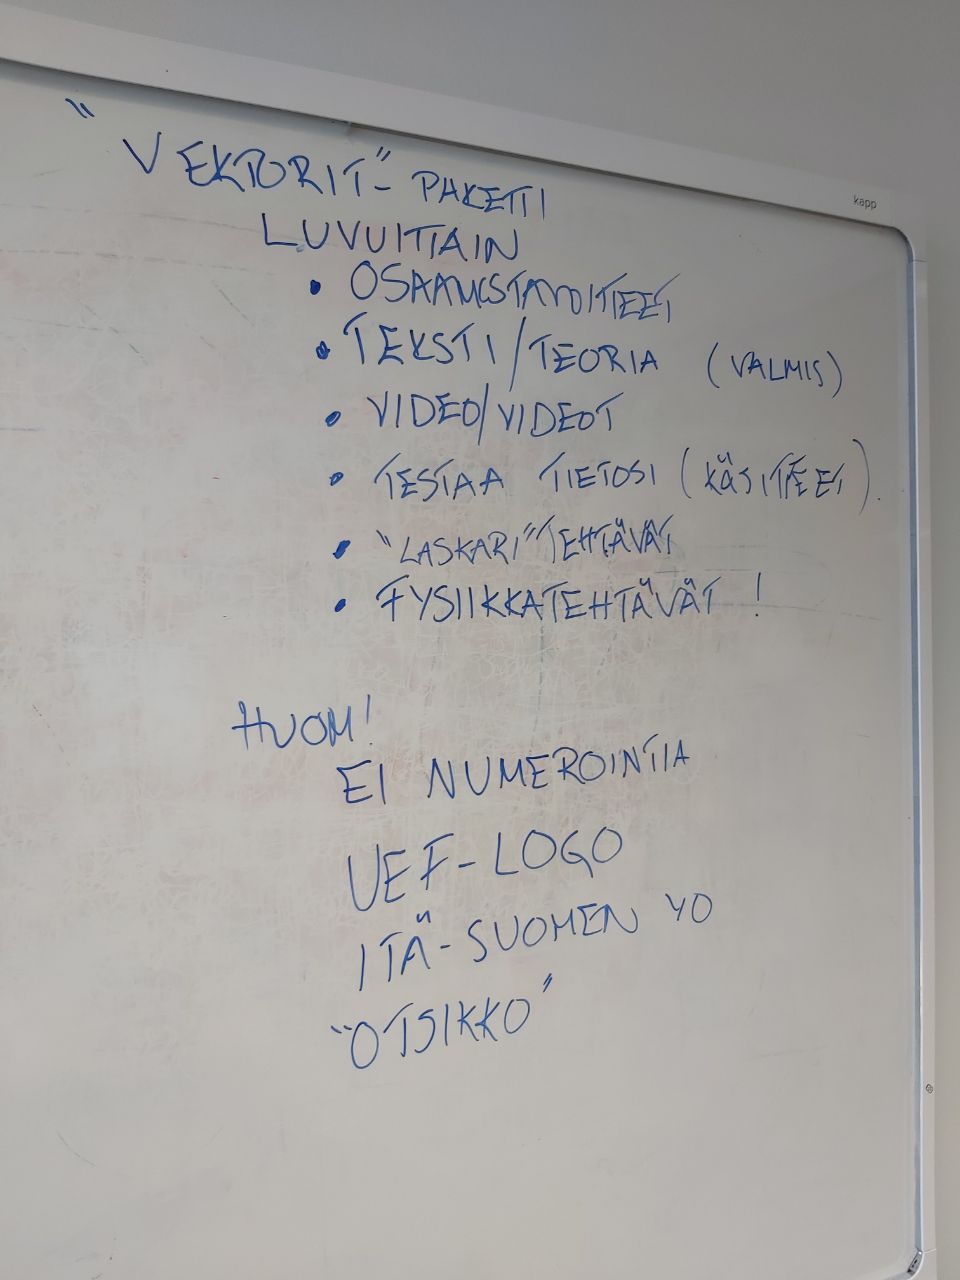 "VEKTORIT"-PAKETTI
LUVUITTAIN
• OSAAMISTAVOITTEET
• TEKSTI/TEORIA (VALMIS)
• VIDEO/VIDEOT
• TESTAA TIETOSI (KÄSITTEET).
• "LASKARI"TEHTÄVÄT
• FYSIIKKATEHTÄVÄT !
HUOM!
EI NUMEROINTIA
UEF-LOGO
ITÄ-SUOMEN YO
"OTSIKKO"
kapp